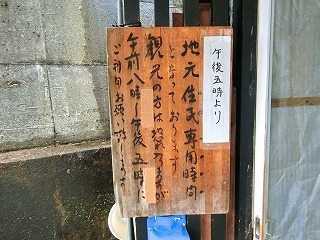 午後五時より
地元住民専用時間
となっております
観光の方は恐れ入りますが
午前八時～午後五時に
ご利用お願い致します